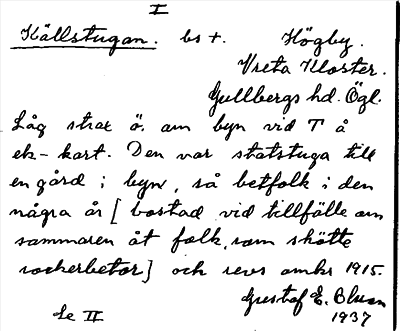 I
Källstugan. bs +. Högby.
Vreta Kloster.
Gullbergs hd. Ögl.
Låg strax ö. om byn vid T å
ek-kart. Den var statstuga till
en gård i byn, så betfolk i den
några år [bostad vid tillfälle om
sommaren åt folk, som skötte
sockerbetor] och revs omkr 1915.
Gustaf E. Blman
Se II 1937